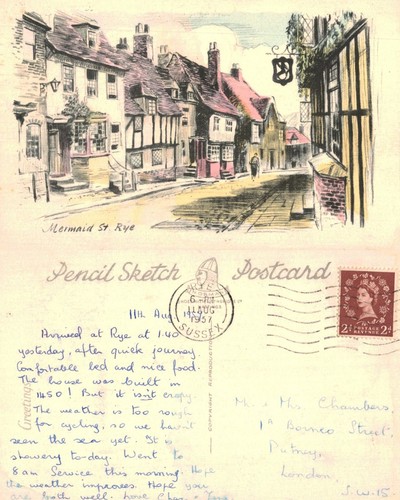 Mermaid St. Rye
Pencil Sketch Postcard
RYE
11 AUG
1957
SUSSEX
2½d POSTAGE REVENUE 2½d
Greetings
COPYRIGHT
11th Aug
Arrived at Rye at 1.40
yesterday, after quick journey.
Comfortable bed and nice food.
The house was built in
1450! But it isn't creepy.
The weather is too rough
for cycling, so we haven't
seen the sea yet. It is
showery to-day. Went to
8 am Service this morning. Hope
the weather improves. Hope you
are both well. Love
Mr. & Mrs. Chambers,
Borneo Street,
Putney,
London.
S.W.15